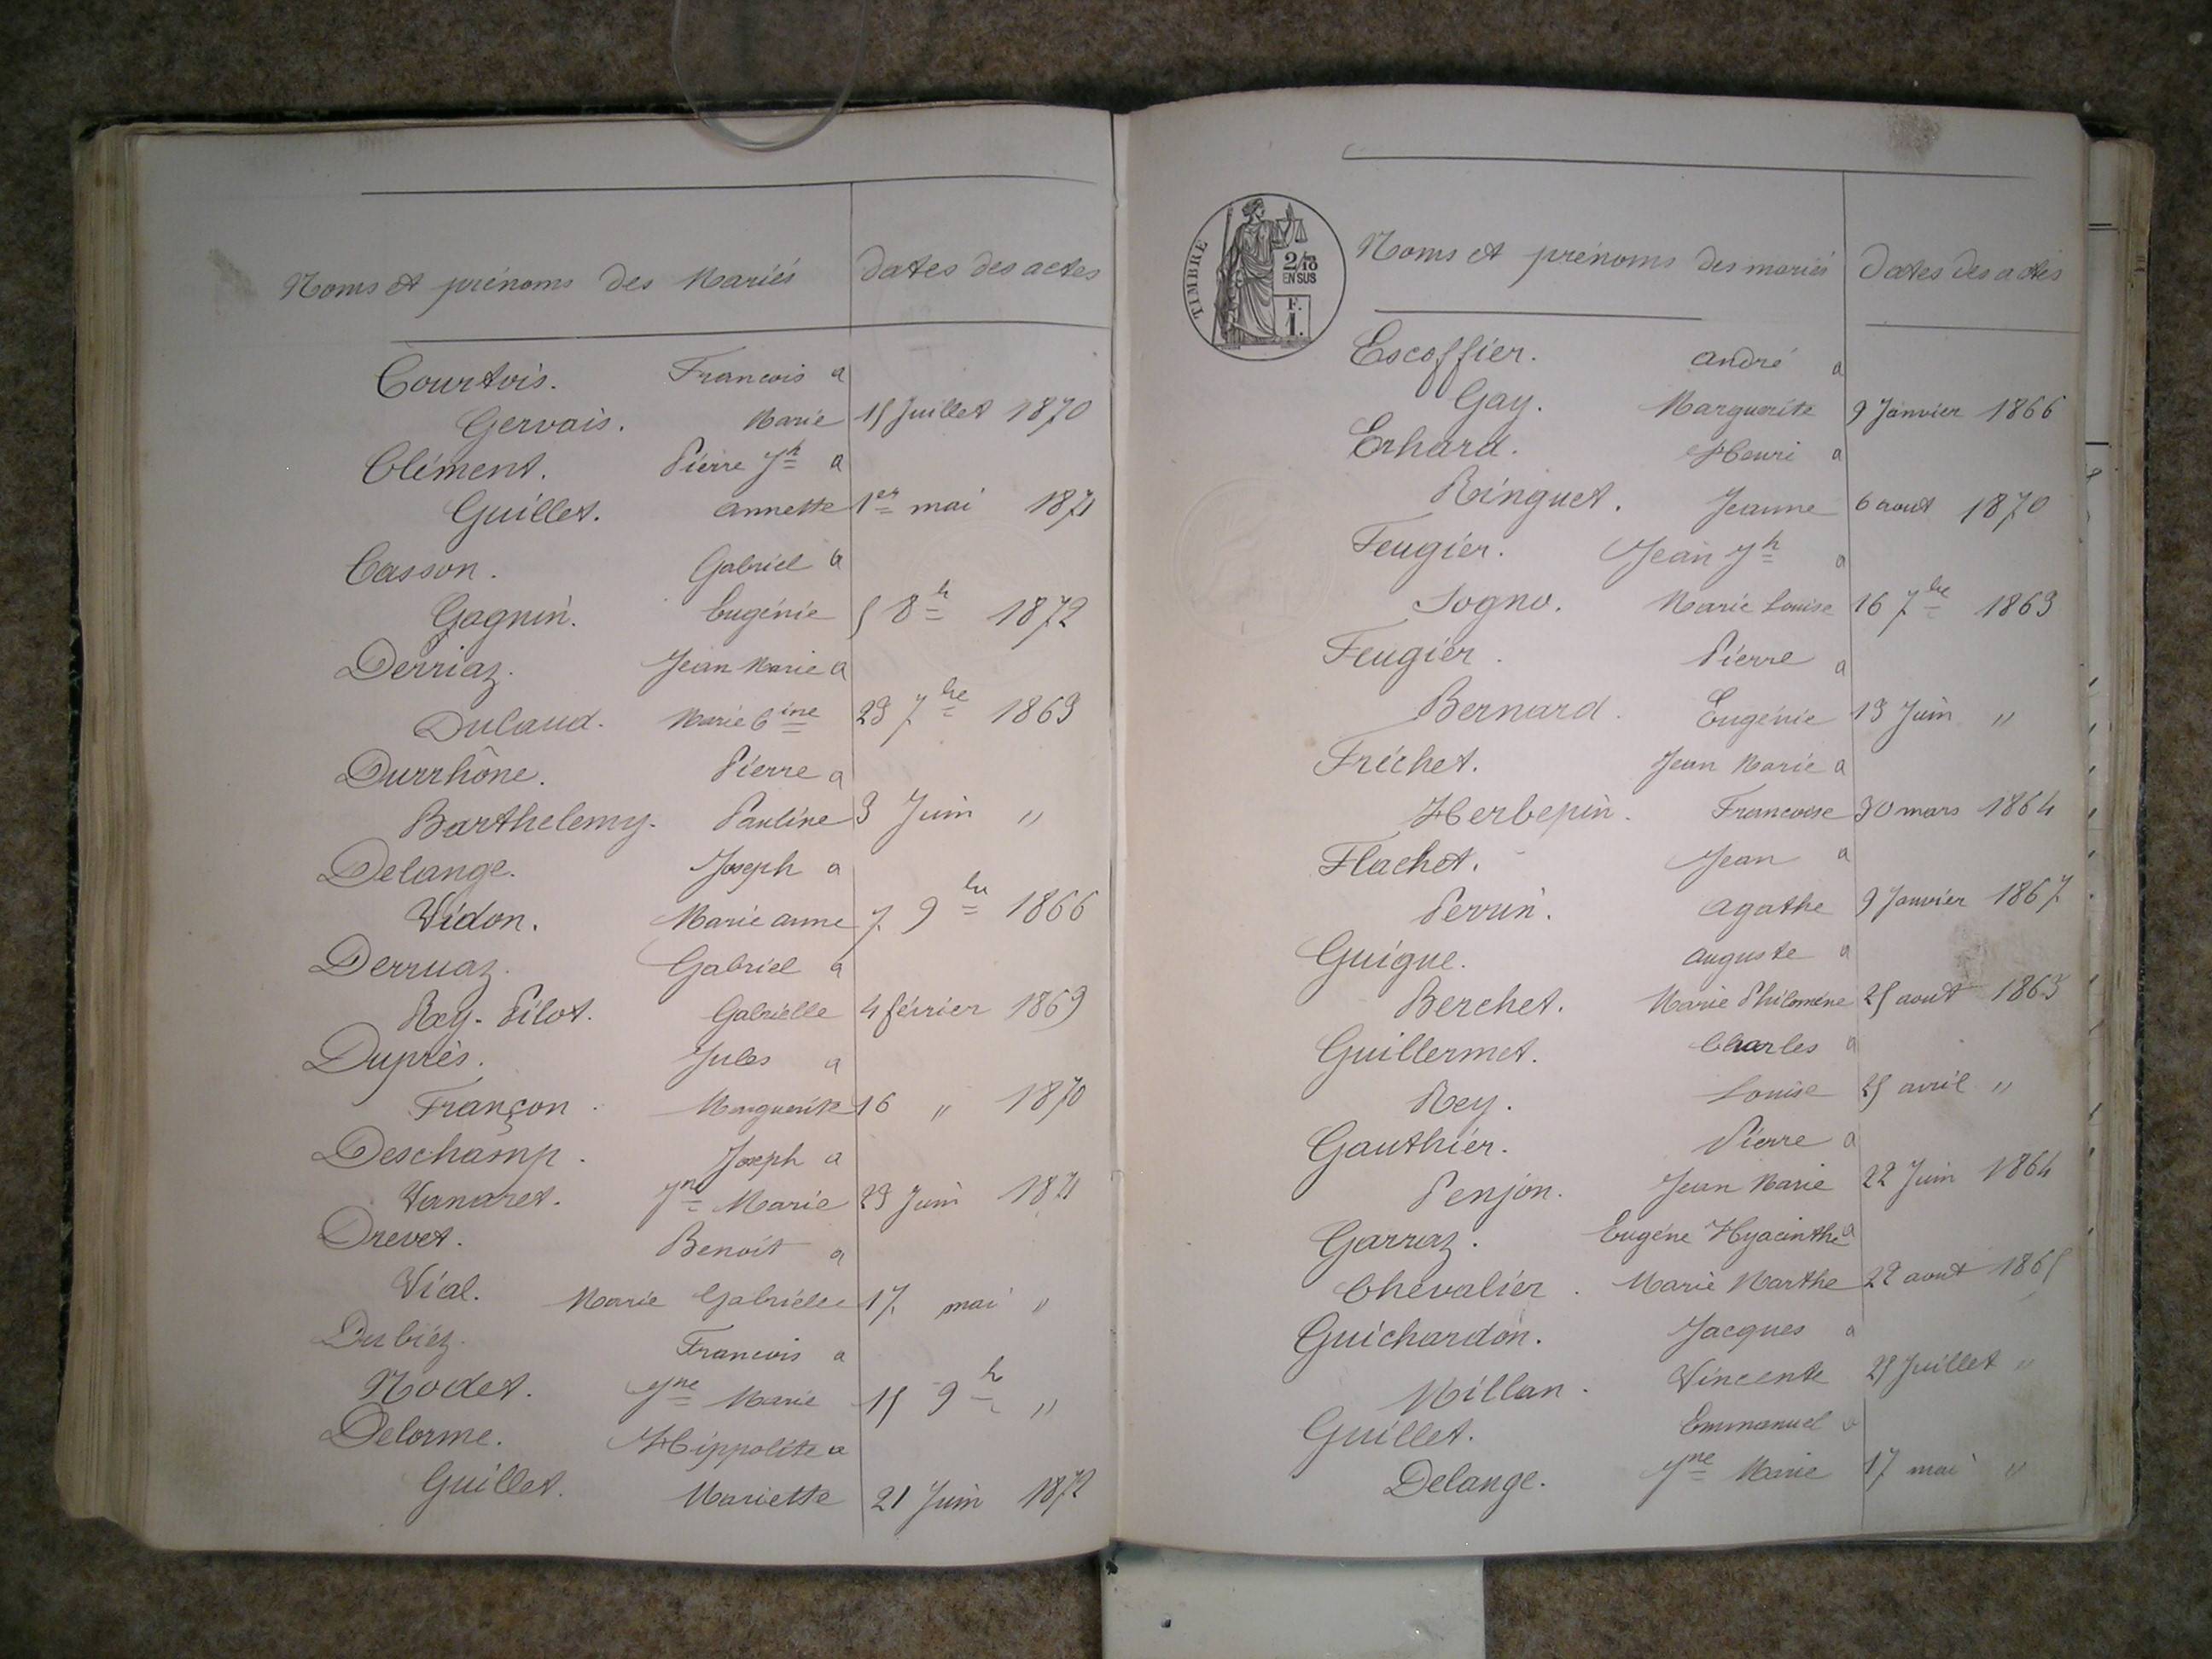 Noms et prénoms des Mariés dates des actes
Courtois. Francois a
Gervais. Marie 15 Juillet 1870
Clément. Pierre Jh a
Guillet. annette 1er mai 1871
Casson. Gabriel a
Gagnin. Eugénie 5 8h 1872
Derriaz. Jean Marie a
Dulaud. Marie Cine 23 7bre 1863
Durrhône. Pierre a
Barthelemy. Pauline 3 Juin "
Delange. Joseph a
Vidon. Marie anne 7 9bre 1866
Derruaz. Gabriel a
Rey-Pilot. Gabrielle 4 février 1869
Duprès. Jules a
Françon. Marguerite 16 " 1870
Deschamp. Joseph a
Vanaret. Jne Marie 23 Juin 1871
Drevet. Benoit a
Vial. Marie Gabrielle 17 mai "
Dubiez. Francois a
Nodet. Jne Marie 15 9h "
Delorme. Hippolite a
Guillet. Mariette 21 Juin 1872
TIMBRE
2/10 EN SUS
F. 1.
Noms et prénoms des mariés Dates des actes
Escoffier. andré a
Gay. Marguerite 9 Janvier 1866
Erhard. Henri a
Ringuet. Jeanne 6 aout 1870
Feugier. Jean Jh a
Sogno. Marie Louise 16 7bre 1863
Feugier. Pierre a
Bernard. Eugénie 13 Juin "
Fréchet. Jean Marie a
Herbepin. Francoise 30 mars 1864
Flachet. Jean a
Perrin. agathe 9 Janvier 1867
Guigue. auguste a
Berchet. Marie Philomène 25 aout 1863
Guillermet. Charles a
Rey. Louise 25 avril "
Gauthier. Pierre a
Penjon. Jean Marie 22 Juin 1864
Garraz. Eugéne Hyacinthe a
Chevalier. Marie Marthe 22 aout 1865
Guichardon. Jacques a
Millan. Vincente 25 Juillet "
Guillet. Emmanuel a
Delange. Jne Marie 17 mai "